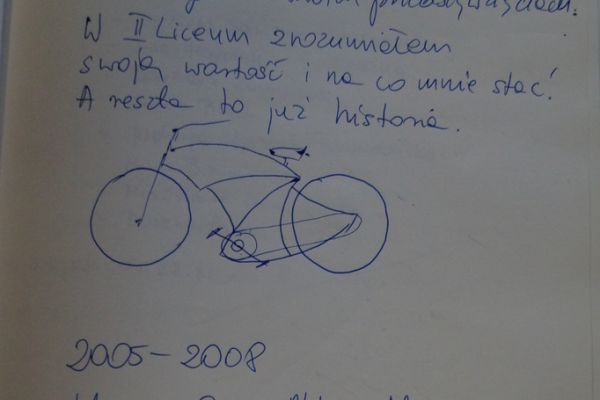 W II Liceum zrozumiałem
swoją wartość i na co mnie stać!
A reszta to już historia.
2005-2008